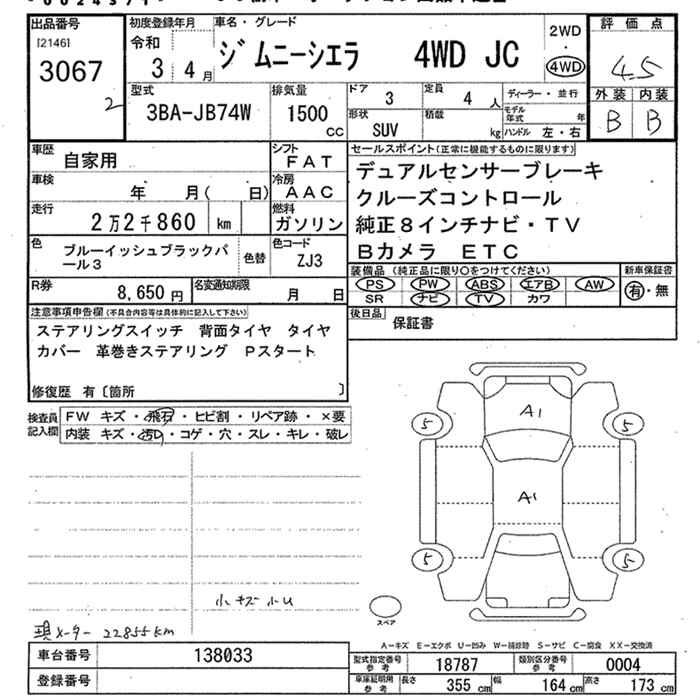 出品番号
[2146]
3067
2
初度登録年月
令和
3 4月
車名・グレード
ジムニーシエラ 4WD JC
2WD
・
4WD
評価点
4.5
外装 内装
B B
型式
3BA-JB74W
排気量
1500
CC
ドア 3
定員 4 人
ディーラー・並行
形状
SUV
積載
kg
モデル年式 年
ハンドル 左・右
車歴
自家用
シフト
FAT
車検
年 月( 日)
冷房
AAC
走行
2万2千860 km
燃料
ガソリン
色
ブルーイッシュブラックパ
ール3
色替
色コード
ZJ3
R券
8,650 円
名変通知期限
月 日
セールスポイント(正常に機能するものに限ります)
デュアルセンサーブレーキ
クルーズコントロール
純正8インチナビ・TV
Bカメラ ETC
装備品 (純正品に限り○をつけてください)
新車保証書
PS PW ABS エアB AW
有・無
SR ナビ TV カワ
後日品
保証書
注意事項申告欄(不具合内容等は具体的に記入して下さい)
ステアリングスイッチ 背面タイヤ タイヤ
カバー 革巻きステアリング Pスタート
修復歴 有〔箇所 〕
検査員
記入欄
FW キズ・飛石・ヒビ割・リペア跡・×要
内装 キズ・汚れ・コゲ・穴・スレ・キレ・破レ
A1
5 5
A1
5 5
スペア
小キズ小U
現メーター 22855km
A-キズ E-エクボ U-凹み W-補修跡 S-サビ C-腐食 XX-交換済
車台番号
138033
登録番号
型式指定番号
参考
18787
類別区分番号
参考
0004
車庫証明用
参考
長さ 355 cm
幅 164 cm
高さ 173 cm